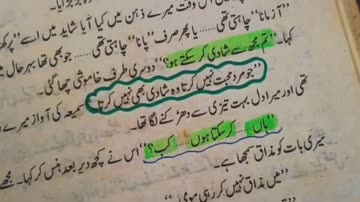 اس وقت میرے ذہن میں کیا آیا شاید میں اسے
"آزمانا" چاہتی تھی..... یا پھر صرف "پانا" چاہتی تھی..... جو بھی تھا بہر حال میں
کہا۔ "تم مجھ سے شادی کر سکتے ہو؟" دوسری طرف خاموشی چھا گئی۔
"جو مرد محبت نہیں کرتا وہ شادی بھی نہیں کرتا" کی آواز میرے
تھی اور میرا دل بہت تیزی سے دھڑکنے لگا تھا۔
"ہاں..... کر سکتا ہوں..... کب؟" اس نے کچھ دیر بعد ہنس کر کہا۔ مجھے
میری بات کو مذاق سمجھا ہے۔
"میں مذاق نہیں کر رہی